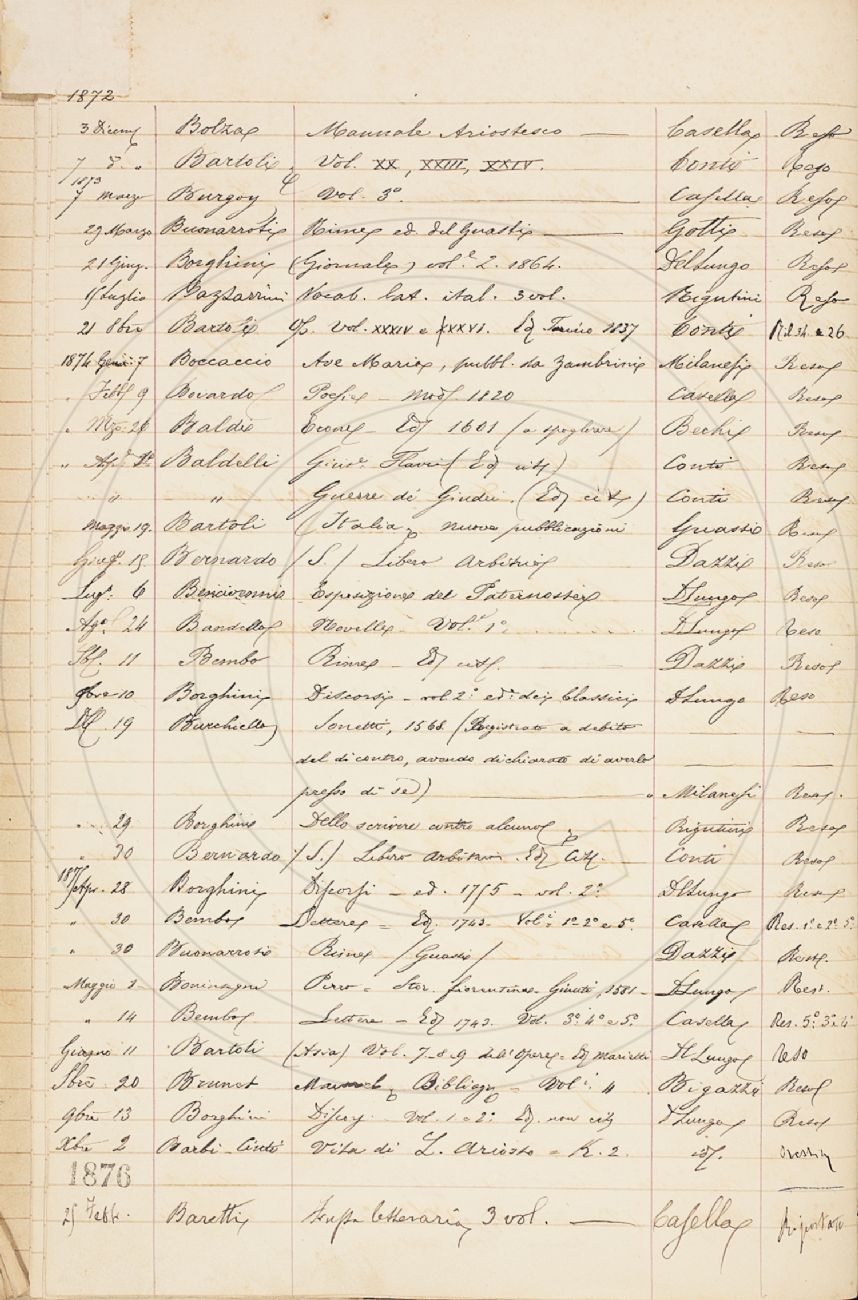 1872
3 Dicem Bolza Manuale Ariostesco — Casella Reso
7 D. " Bartoli Vol. XX, XXIII, XXIV. Conti Reso
1873
7 Marzo Burgoy Vol. 3° Casella Reso
29 Marzo Buonarroti Rime ed. del Guasti — Gotti Reso
21 Giug. Borghini (Giornale) vol. 2. 1864. Del Lungo Reso
15 Luglio Pazzarrini Vocab. lat. ital. 3 vol. Rigutini Reso
21 8bre Bartoli Op. Vol. XXXIV e XXXVI. Ed Torino 1837 Conti
1874 Gen: 7 Boccaccio Ave Maria, pubbl. da Zambrini Milanesi Reso
" Febb 9 Bovardo Poesie — Mod 1820 Casella Reso
" Mzo 26 Baldi Ed 1601 (a spogliare) Bechi Reso
" Baldelli Gius. Flavi (Ed cit) Conti Reso
" " Guerre de' Giudei. (Ed cit) Conti Reso
Maggio 19. Bartoli (Italia) nuove pubblicazioni Guasti Reso
Giug. 15 Bernardo (S.) Libero Arbitrio Dazzi Reso
Lug. 6 Bencivenni Esposizione del Paternostro DLungo Reso
Ago. 24 Bandello Novelle Vol. 1° DLungo Reso
11 Bembo Rime — Ed cit. Dazzi Reso
9bre 10 Borghini Discorsi — vol 2° ed. dei Classici DLungo Reso
19 Burchiello Sonetti, 1568. (Registrato a debito — —
del dicontro, avendo dichiarato di averlo — —
presso di sè) — " Milanesi Reso.
" 29 Borghini Dello scrivere contro alcuno Rigutini Reso
" 30 Bernardo (S.) Libero Arbitrio. Ed Cit. — Conti Reso
1875 Apr. 28 Borghini Discorsi — ed. 1755 — vol. 2° DelLungo Reso
" 30 Bembo Lettere = Ed. 1743. Vol. 1° 2° e 5°. Casella Res. 1° e 2° 5°
" 30 Buonarroti Rime (Guasti) Dazzi Reso.
Maggio 3 Boninsegni Piero = Stor. fiorentina — Giunti, 1581 — DLungo Res.
" 14 Bembo Lettere — Ed 1743. Vol. 3° 4° e 5°. Casella Res. 5° 3° 4°
Giugno 11 Bartoli (Asia) Vol. 7–8–9 dell'Opere = Ed Marietti DLungo Reso
20 Brunet Manuel Bibliog = Vol. 4 Bigazzi Reso
9bre 13 Borghini Disc. Vol. 1 e 2° Ed. non cit DLungo Reso
Xbre 2 Barbi-Cinti Vita di L. Ariosto = K. 2. id.
1876
25 Febb. Baretti Frusta letteraria 3 vol. — Casella Riportato